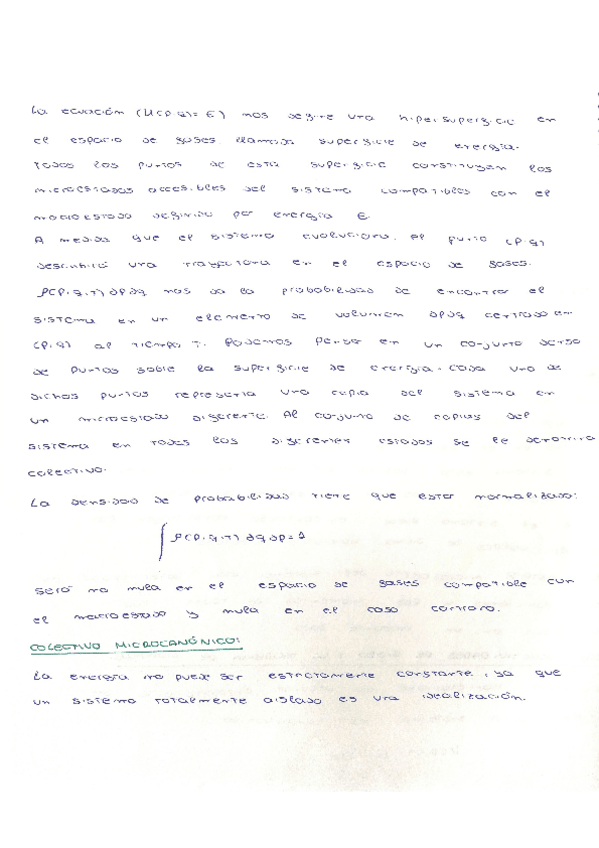 La ecuación (U(p,q)=E) nos define una hipersuperficie en
el espacio de fases llamada superficie de energía.
Todos los puntos de esta superficie constituyen los
microestados accesibles del sistema compatibles con el
macroestado definido por energía E.
A medida que el sistema evoluciona, el punto (p,q)
describirá una trayectoria en el espacio de fases.
ρ(p,q,t) dpdq nos da la probabilidad de encontrar el
sistema en un elemento de volumen dpdq centrado en
(p,q) al tiempo t. Podemos pensar en un conjunto denso
de puntos sobre la superficie de energía. Cada uno de
dichos puntos representa una copia del sistema en
un microestado diferente. Al conjunto de copias del
sistema en todos los diferentes estados se le denomina
colectivo.
La densidad de probabilidad tiene que estar normalizada:
∫ρ(p,q,t) dq dp = 1
Será no nula en el espacio de fases compatible con
el macroestado y nula en el caso contrario.
COLECTIVO MICROCANÓNICO:
La energía no puede ser estrictamente constante, ya que
un sistema totalmente aislado es una idealización.